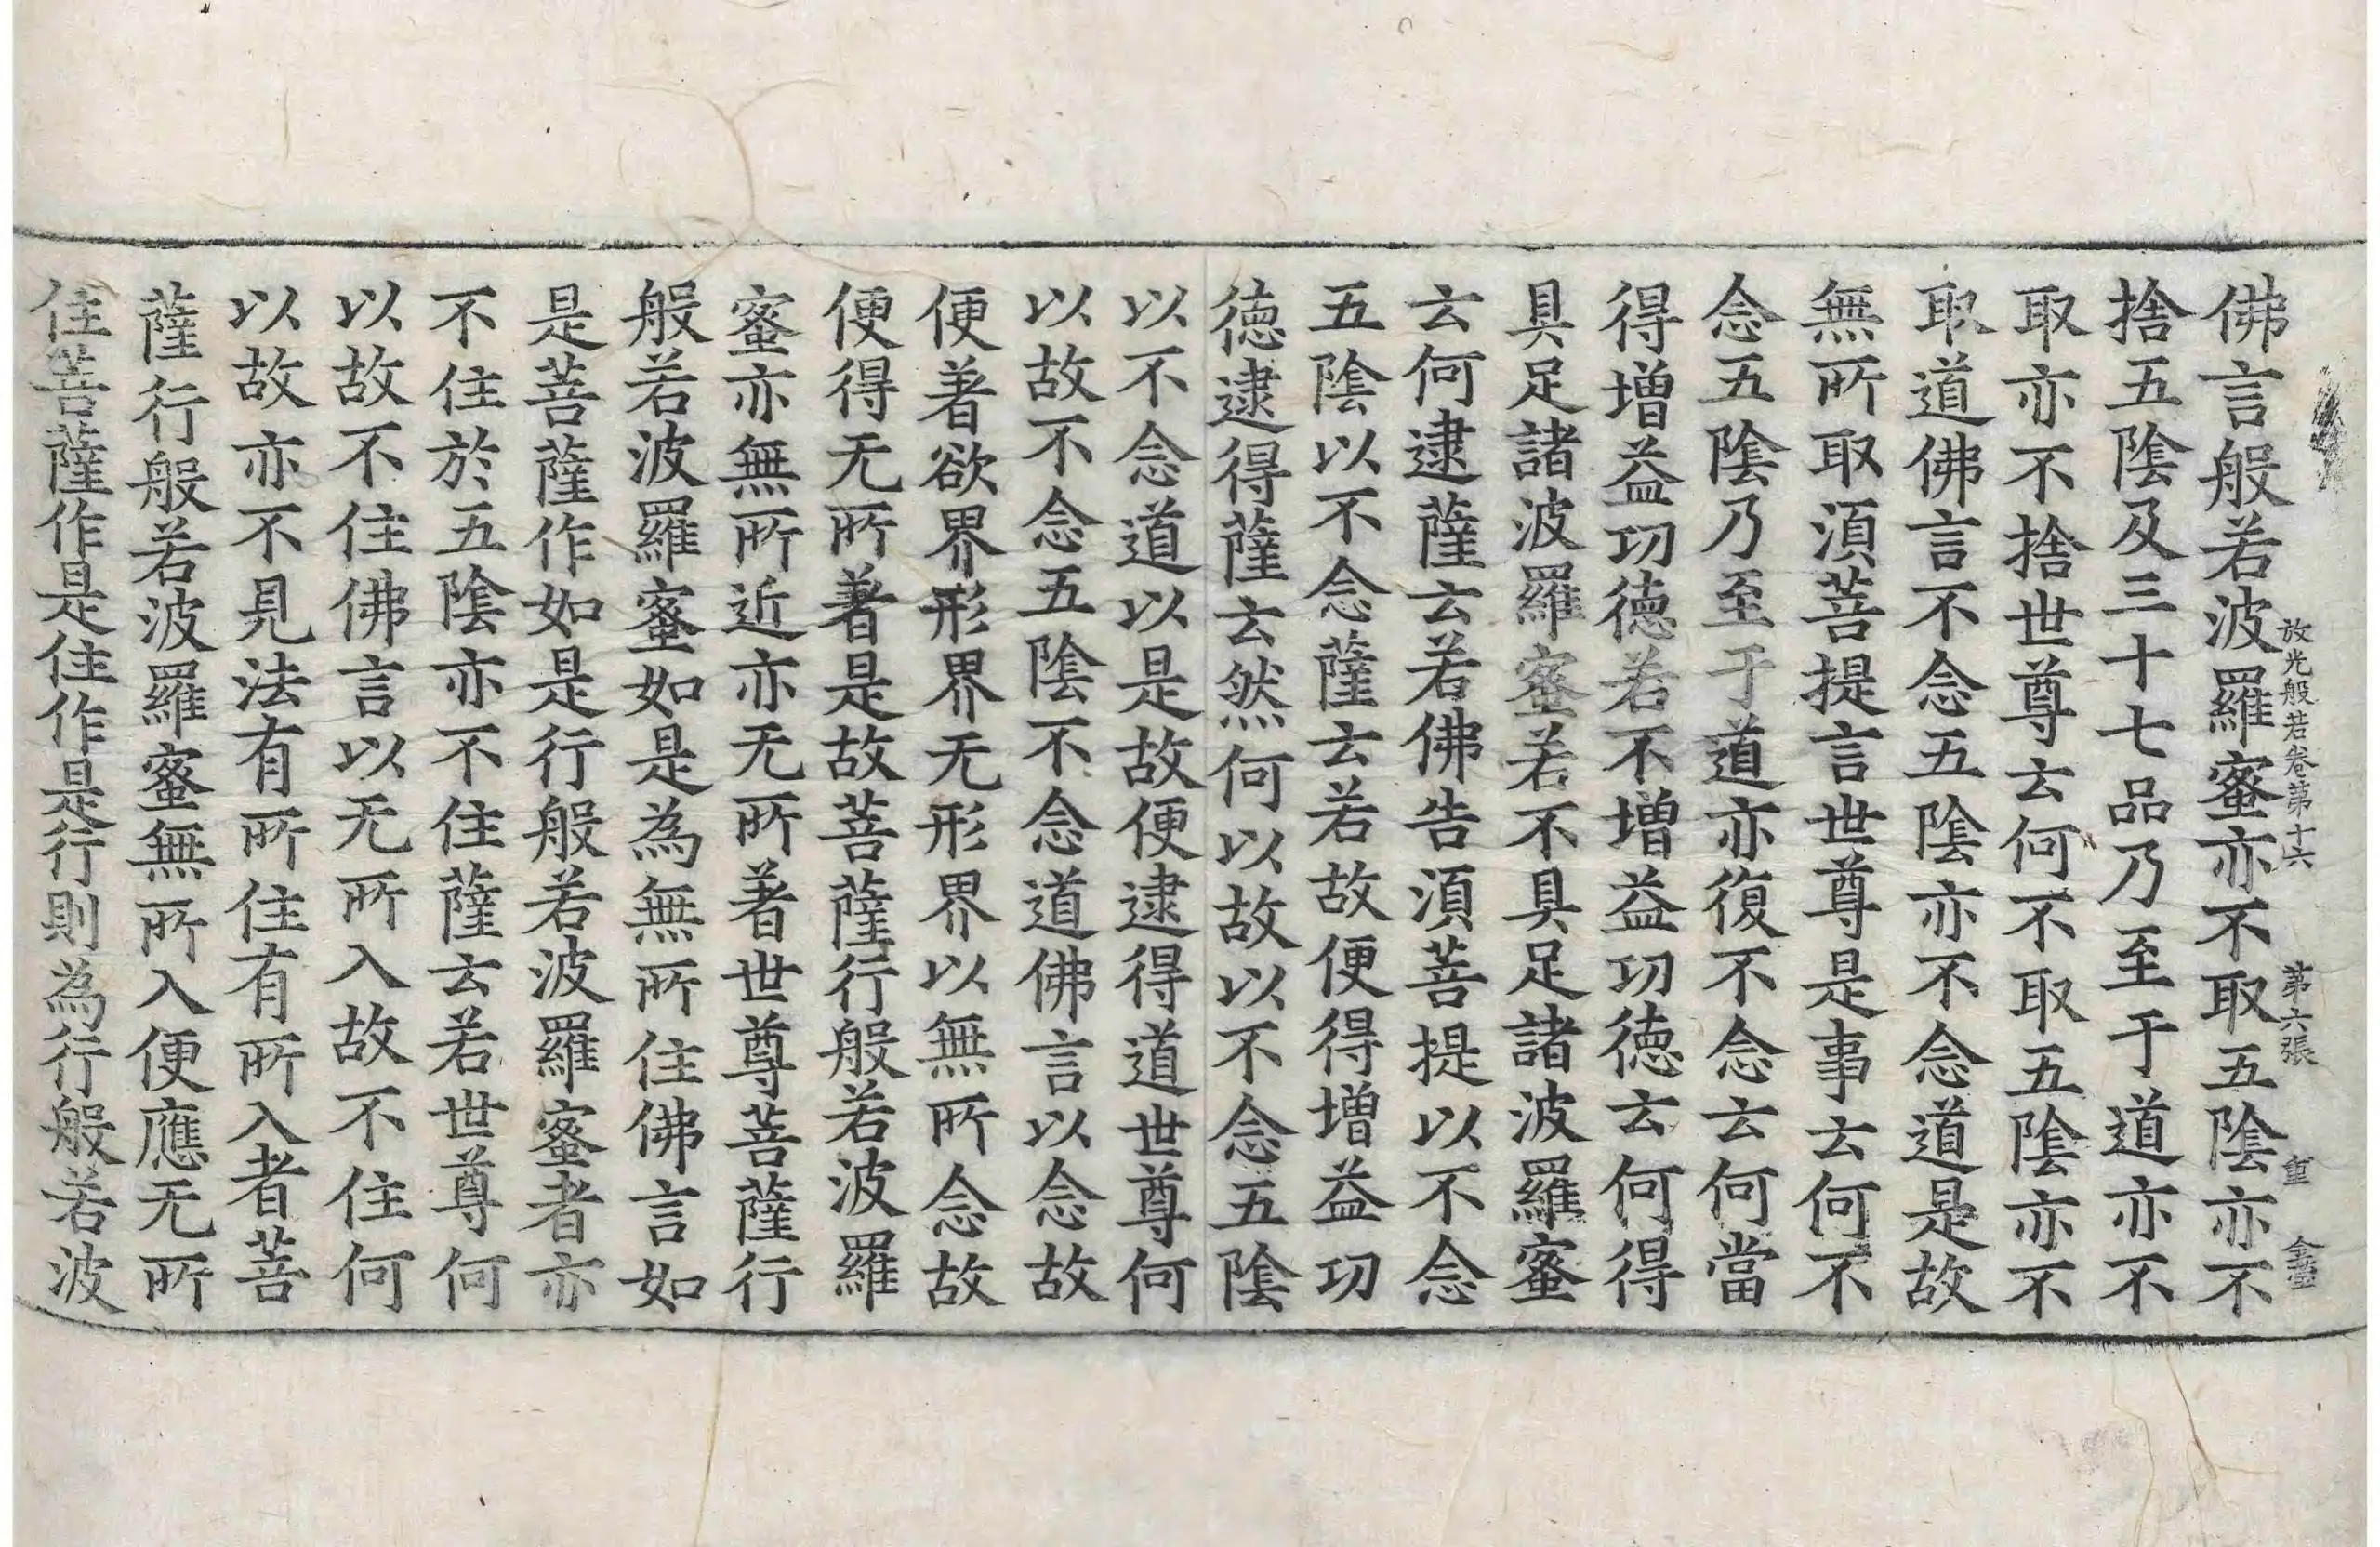 放光般若卷第十六 第六張 重
佛言般若波羅蜜亦不取五陰亦不
捨五陰及三十七品乃至于道亦不
取亦不捨世尊云何不取五陰亦不
取道佛言不念五陰亦不念道是故
無所取須菩提言世尊是事云何不
念五陰乃至于道亦復不念云何當
得增益功德若不增益功德云何得
具足諸波羅蜜若不具足諸波羅蜜
云何逮薩云若佛告須菩提以不念
五陰以不念薩云若故便得增益功
德逮得薩云然何以故以不念五陰
以不念道以是故便逮得道世尊何
以故不念五陰不念道佛言以念故
便著欲界形界无形界以無所念故
便得无所著是故菩薩行般若波羅
蜜亦無所近亦无所著世尊菩薩行
般若波羅蜜如是為無所住佛言如
是菩薩作如是行般若波羅蜜者亦
不住於五陰亦不住薩云若世尊何
以故不住佛言以无所入故不住何
以故亦不見法有所住有所入者菩
薩行般若波羅蜜無所入便應无所
住菩薩作是住作是行則為行般若波